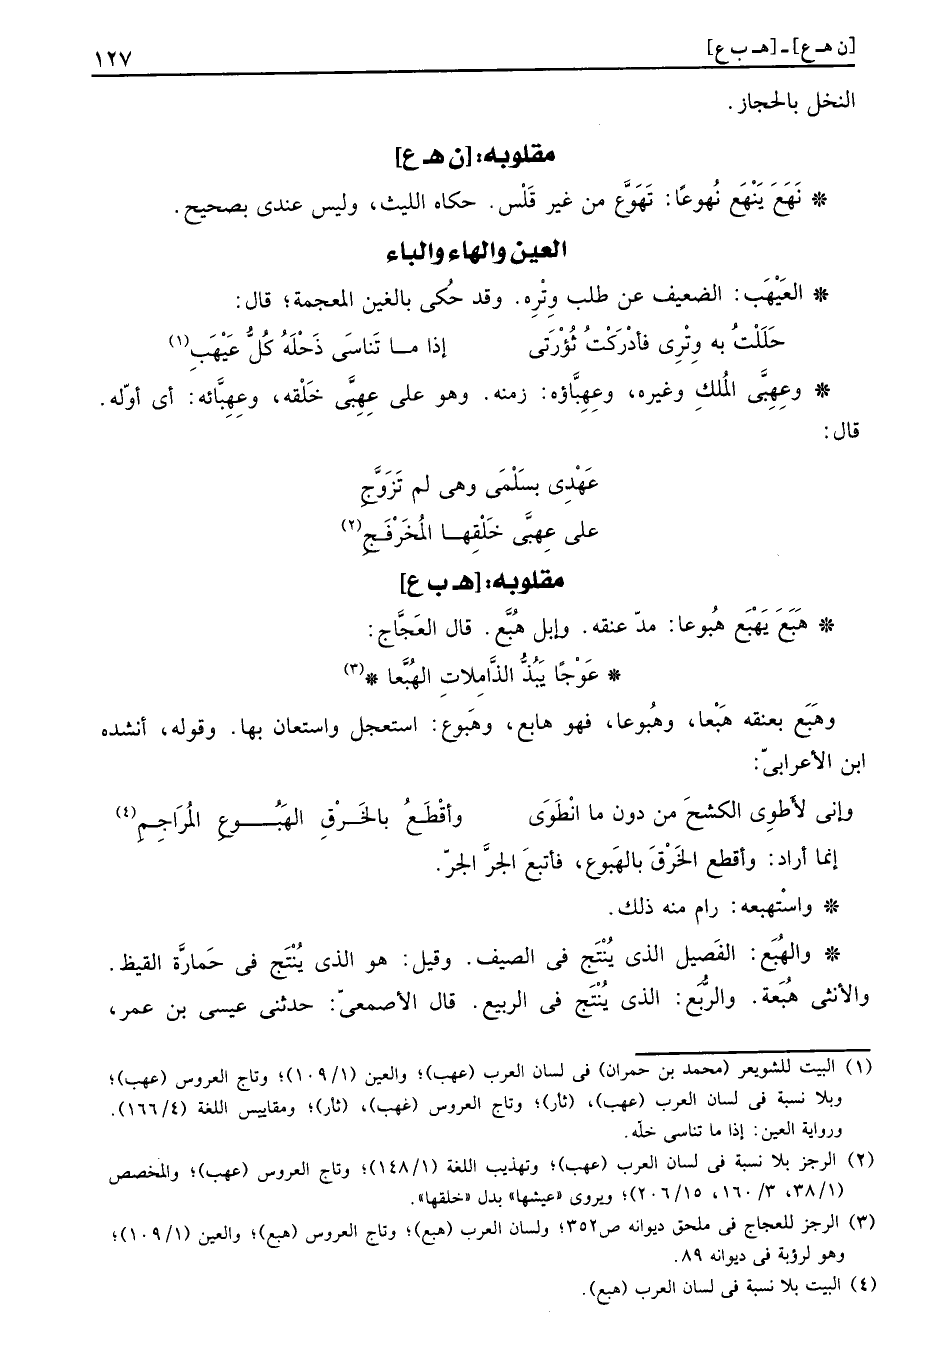 [ن هـ ع] ـ [هـ ب ع] ١٢٧
النخل بالحجاز.
مقلوبه: [ن هـ ع]
* نَهَعَ يَنْهَع نُهوعًا: تَهَوَّع من غير قَلْس. حكاه الليث، وليس عندى بصحيح.
العين والهاء والباء
* العَيْهَب: الضعيف عن طلب وِتْره. وقد حُكى بالغين المعجمة؛ قال:
حَلَلْتُ به وِتْرِى فأدْرَكْتُ ثُؤْرَتى إذا مـا تَناسَى ذَحْلَهُ كُلُّ عَيْهَبِ(١)
* وعِهِبَّى المُلكِ وغيره، وعِهِبَّاؤه: زمنه. وهو على عِهِبَّى خَلْقه، وعِهِبَّائه: أى أوّله.
قال:
عَهْدِى بسَلْمَى وهى لم تَزَوَّجِ
على عِهبَّى خَلْقِهـا المُخَرْفَـجِ(٢)
مقلوبه: [هـ ب ع]
* هَبَعَ يَهْبَع هُبوعا: مدّ عنقه. وإبل هُبَّع. قال العَجَّاج:
* عَوْجًا يَبُذُّ الذَّامِلاتِ الهُبَّعا *(٣)
وهَبَع بعنقه هَبْعا، وهُبوعا، فهو هابع، وهَبوع: استعجل واستعان بها. وقوله، أنشده
ابن الأعرابىّ:
وإنى لأطوِى الكشحَ من دون ما انْطَوَى وأقْطَـعُ بالخَـرْقِ الهَبُـــوعِ المُرَاجِـمِ(٤)
إنما أراد: وأقطع الخَرْقَ بالهَبوع، فأتبعَ الجرَّ الجرّ.
* واستْهبعه: رام منه ذلك.
* والهُبَع: الفَصيل الذى يُنْتَج فى الصيف. وقيل: هو الذى يُنْتَج فى حَمارَّة القيظ.
والأنثى هُبَعة. والرُّبَع: الذى يُنْتَج فى الربيع. قال الأصمعىّ: حدثنى عيسى بن عمر،
(١) البيت للشويعر (محمد بن حمران) فى لسان العرب (عهب)؛ والعين (١/ ١٠٩)؛ وتاج العروس (عهب)؛
وبلا نسبة فى لسان العرب (عهب)، (ثأر)؛ وتاج العروس (غهب)، (ثأر)؛ ومقاييس اللغة (٤/ ١٦٦).
ورواية العين: إذا ما تناسى خلّه.
(٢) الرجز بلا نسبة فى لسان العرب (عهب)؛ وتهذيب اللغة (١/ ١٤٨)؛ وتاج العروس (عهب)؛ والمخصص
(١/ ٣٨، ٣/ ١٦٠، ١٥/ ٢٠٦)؛ ويروى «عيشها» بدل «خلقها».
(٣) الرجز للعجاج فى ملحق ديوانه ص٣٥٢؛ ولسان العرب (هبع)؛ وتاج العروس (هبع)؛ والعين (١/ ١٠٩)؛
وهو لرؤبة فى ديوانه ٨٩.
(٤) البيت بلا نسبة فى لسان العرب (هبع).